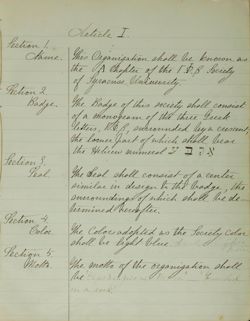 Article I.
Section 1.
Name. This Organization shall be known as
the B Chapter of the Γ.Φ.Β Society
of Syracuse University.
Section 2.
Badge. The Badge of this society shall consist
of a monogram of the three Greek
letters, surrounded by a crescent,
the lower part of which shall bear
the Hebrew numeral
Section 3.
Seal. The Seal shall consist of a center
similar in design to the badge, the
surroundings of which shall be de-
termined hereafter.
Section 4.
Color. The color adopted as the Society color
shall be light blue.
Section 5.
Motto. The motto of the organization shall
be